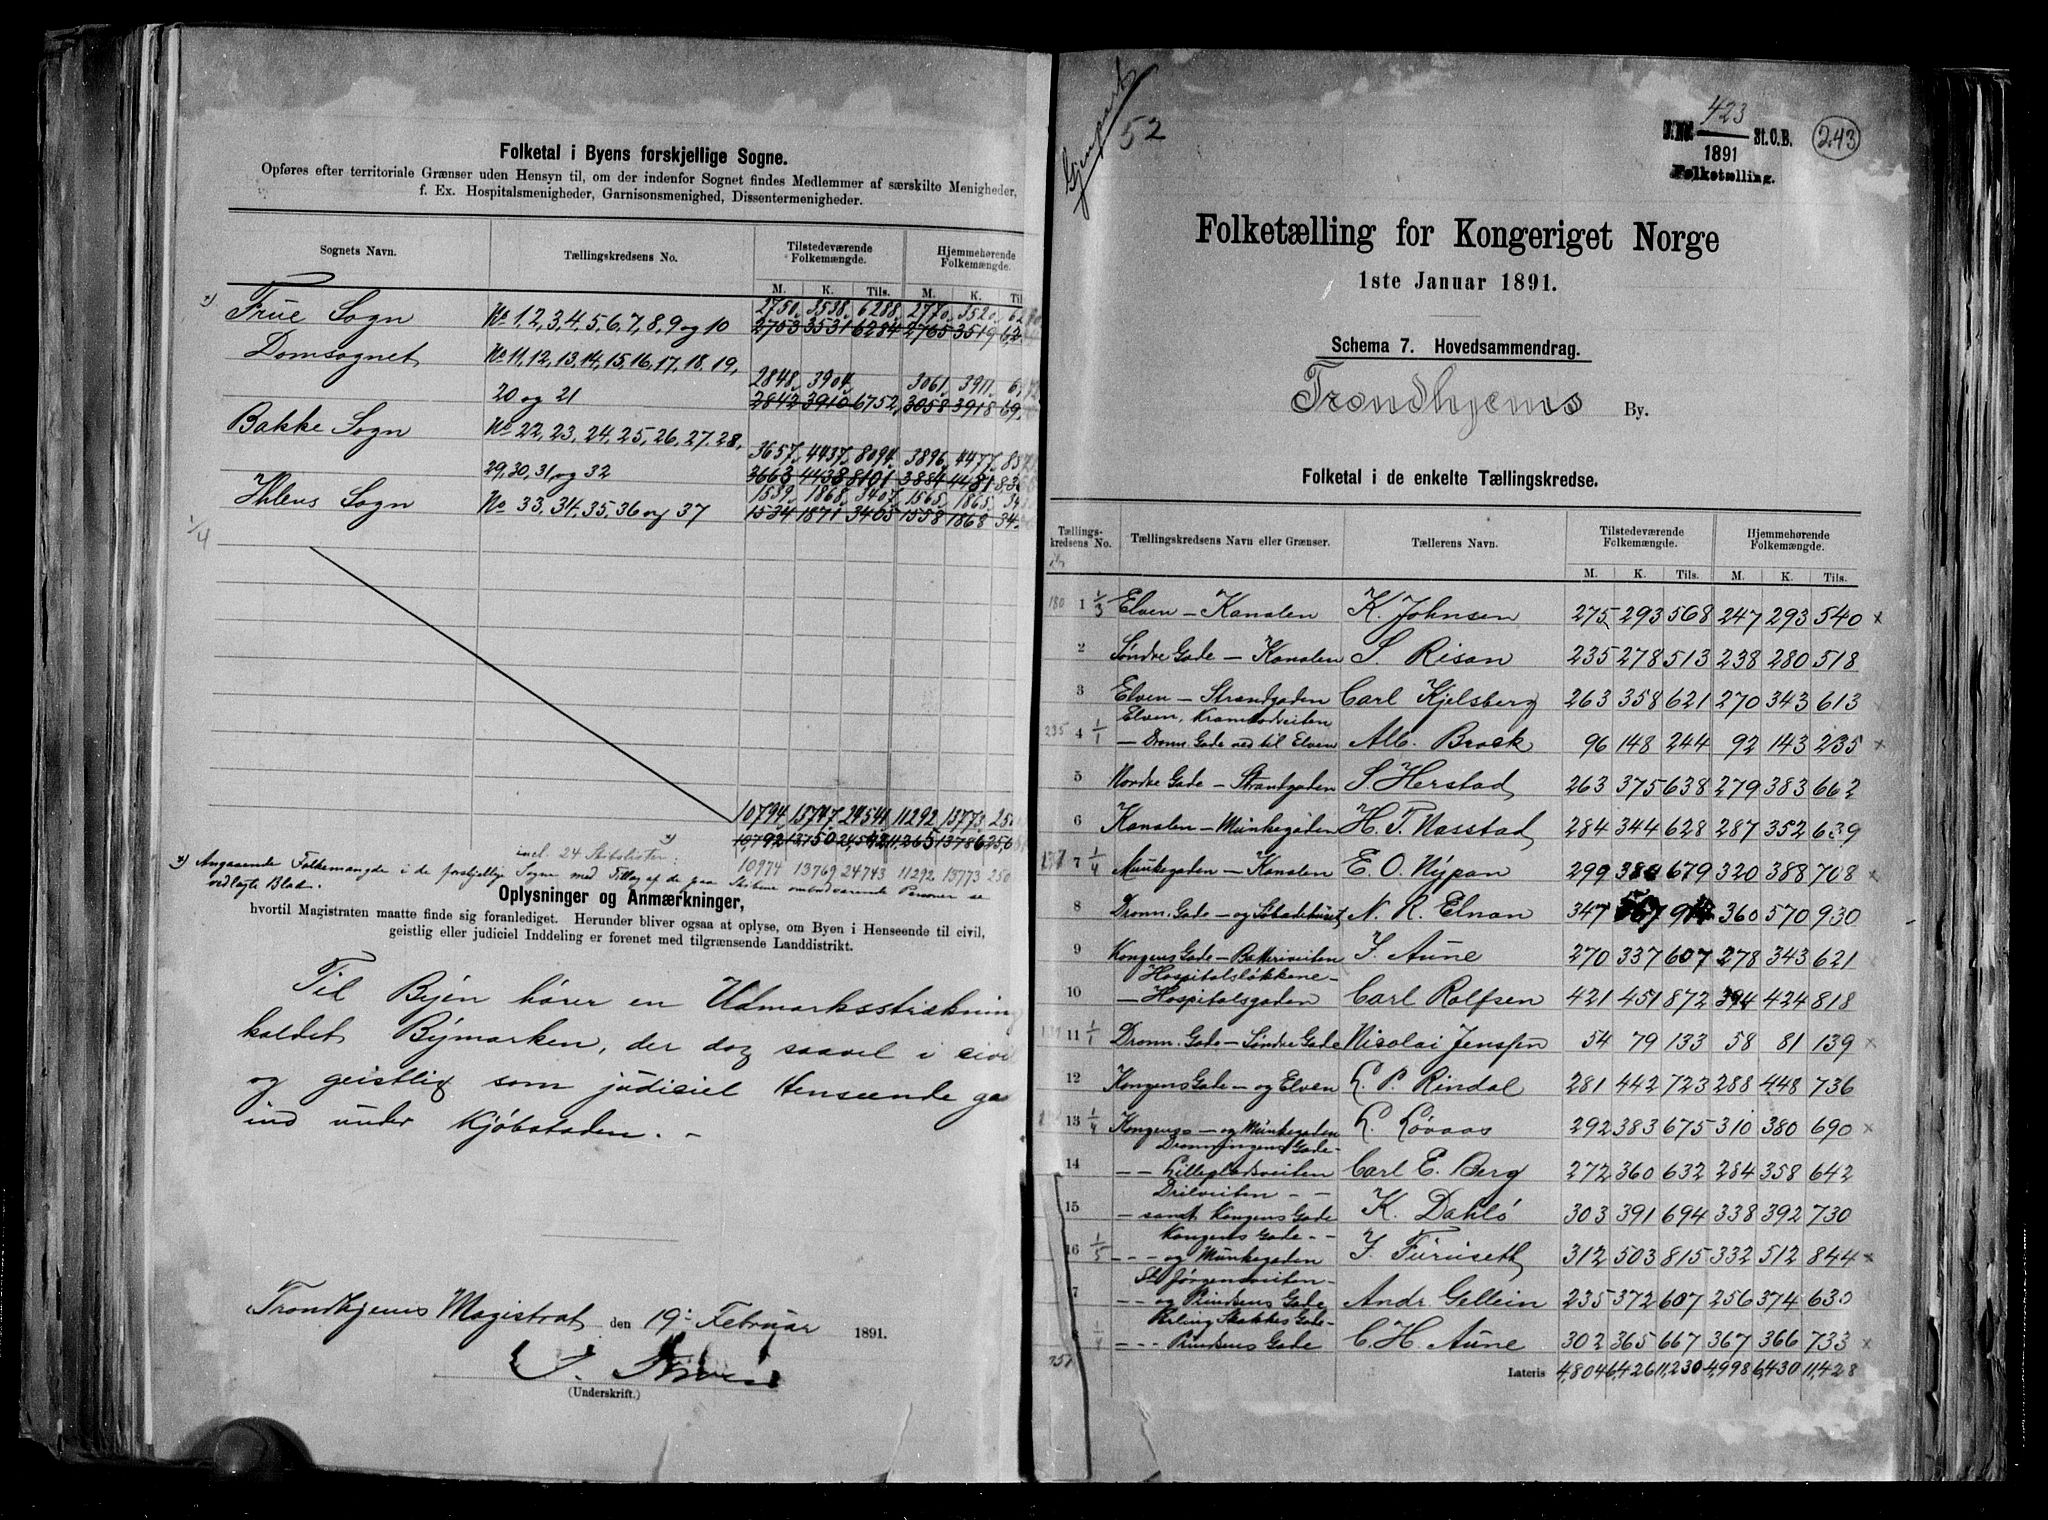 Folketal i Byens forskjellige Sogne.
Opføres efter territoriale Grænser uden Hensyn til, om der indenfor Sognet findes Medlemmer af særskilte Menigheder,
f. Ex. Hospitalsmenigheder, Garnisonsmenighed, Dissentermenigheder.
Sognets Navn. Tællingskredsens No. Tilstedeværende Folkemængde. Hjemmehørende Folkemængde.
M. K. Tils. M. K.
2750 3538 6288 2770 3520
Frue Sogn No 1, 2, 3, 4, 5, 6, 7, 8, 9 og 10 2753 3531 6284 2765 3519
Domsognet No 11, 12, 13, 14, 15, 16, 17, 18, 19,
2848 3904 3061 3911
20 og 21 2842 3910 6752 3058 3918
Bakke Sogn No 22, 23, 24, 25, 26, 27, 28,
3657 4437 8094 3896 4477
29, 30, 31, og 32 3663 4438 8101 3884 4481
1539 1868 3407 1565 1865
Ihlens Sogn No 33, 34, 35, 36 og 37 1534 1871 3405 1558 1868
1/4
10794 13747 24541 11292 13773
10792 13750 24,542 11,265 13786
incl. 24 Skibslister: 10974 13769 24743 11292 13773 250
x) Angaaende Folkemængde i de forskjellige Sogne med Tillæg af de paa Skibene ombordværende Personer se
vedlagte Blad.
Oplysninger og Anmærkninger,
hvortil Magistraten maatte finde sig foranlediget. Herunder bliver ogsaa at oplyse, om Byen i Henseende til civil,
geistlig eller judiciel Inddeling er forenet med tilgrænsende Landdistrikt.
Til Byen hører en Udmarksstrækning
kaldet Bymarken, der dog saavel i civil
og geistlig som judiciel Henseende gaa
ind under Kjøbstaden. –
Trondhjems Magistrat den 19: Februar 1891.
(Underskrift.)
Gjenpart
52
J. No. 423 St.O.B.
1891
Folketælling.
243
Folketælling for Kongeriget Norge
1ste Januar 1891.
Schema 7. Hovedsammendrag.
Trondhjems By.
Folketal i de enkelte Tællingskredse.
Tællingskredsens No. Tællingskredsens Navn eller Grænser. Tællerens Navn. Tilstedeværende Folkemængde. Hjemmehørende Folkemængde.
M. K. Tils. M. K. Tils.
180 1 1/3 Elven – Kanalen K. Johnsen 275 293 568 247 293 540 x
2 Søndre Gade – Kanalen S. Risan 235 278 513 238 280 518
3 Elven – Strandgaden Carl Kjelsberg 263 358 621 270 343 613
Elven, Krambodveiten
235 4 1/1 – Dronn. Gade ned til Elven Alb. Brock 96 148 244 92 143 235 x
5 Nordre Gade – Strandgaden S. Herstad 263 375 638 279 383 662
6 Kanalen – Munkegaden H. T. Nasstad 284 344 628 287 352 639
7 1/4 Munkegaden – Kanalen E. O. Nypan 299 380 679 320 388 708 x
8 Dronn. Gade – og N. R. Elnan 347 360 570 930
9 Kongens Gade – Batteriveiten J. Aune 270 337 607 278 343 621
Hospitalsløkkene –
10 – Hospitalsgaden Carl Rolfsen 421 451 872 394 424 818
11 1/1 Dronn. Gade – Søndre Gade Nicolai Jenssen 54 79 133 58 81 139 x
12 Kongens Gade – og Elven L. P. Rindal 281 442 723 288 448 736
13 1/4 Kongens – og Munkegaden L. Løvaas 292 383 675 310 380 690 x
Dronningens Gade –
14 – – Lillegladsveiten Carl E. Berg 272 360 632 284 358 642
Drilveiten – –
15 – samt Kongens Gade K. Dahlø 303 391 694 338 392 730
Kongens Gade – –
16 1/5 – – og Munkegaden J. Furuseth 312 503 815 332 512 844 x
St Jørgensveiten –
7 – – og Prindsens Gade Andr. Gellein 235 372 607 256 374 630
Erling Skakkes Gade –
1/4 – – Prindsens Gade C. H. Aune 302 365 667 367 366 733 x
Lateris 4,804 6,426 11,230 4,998 6,430 11,428